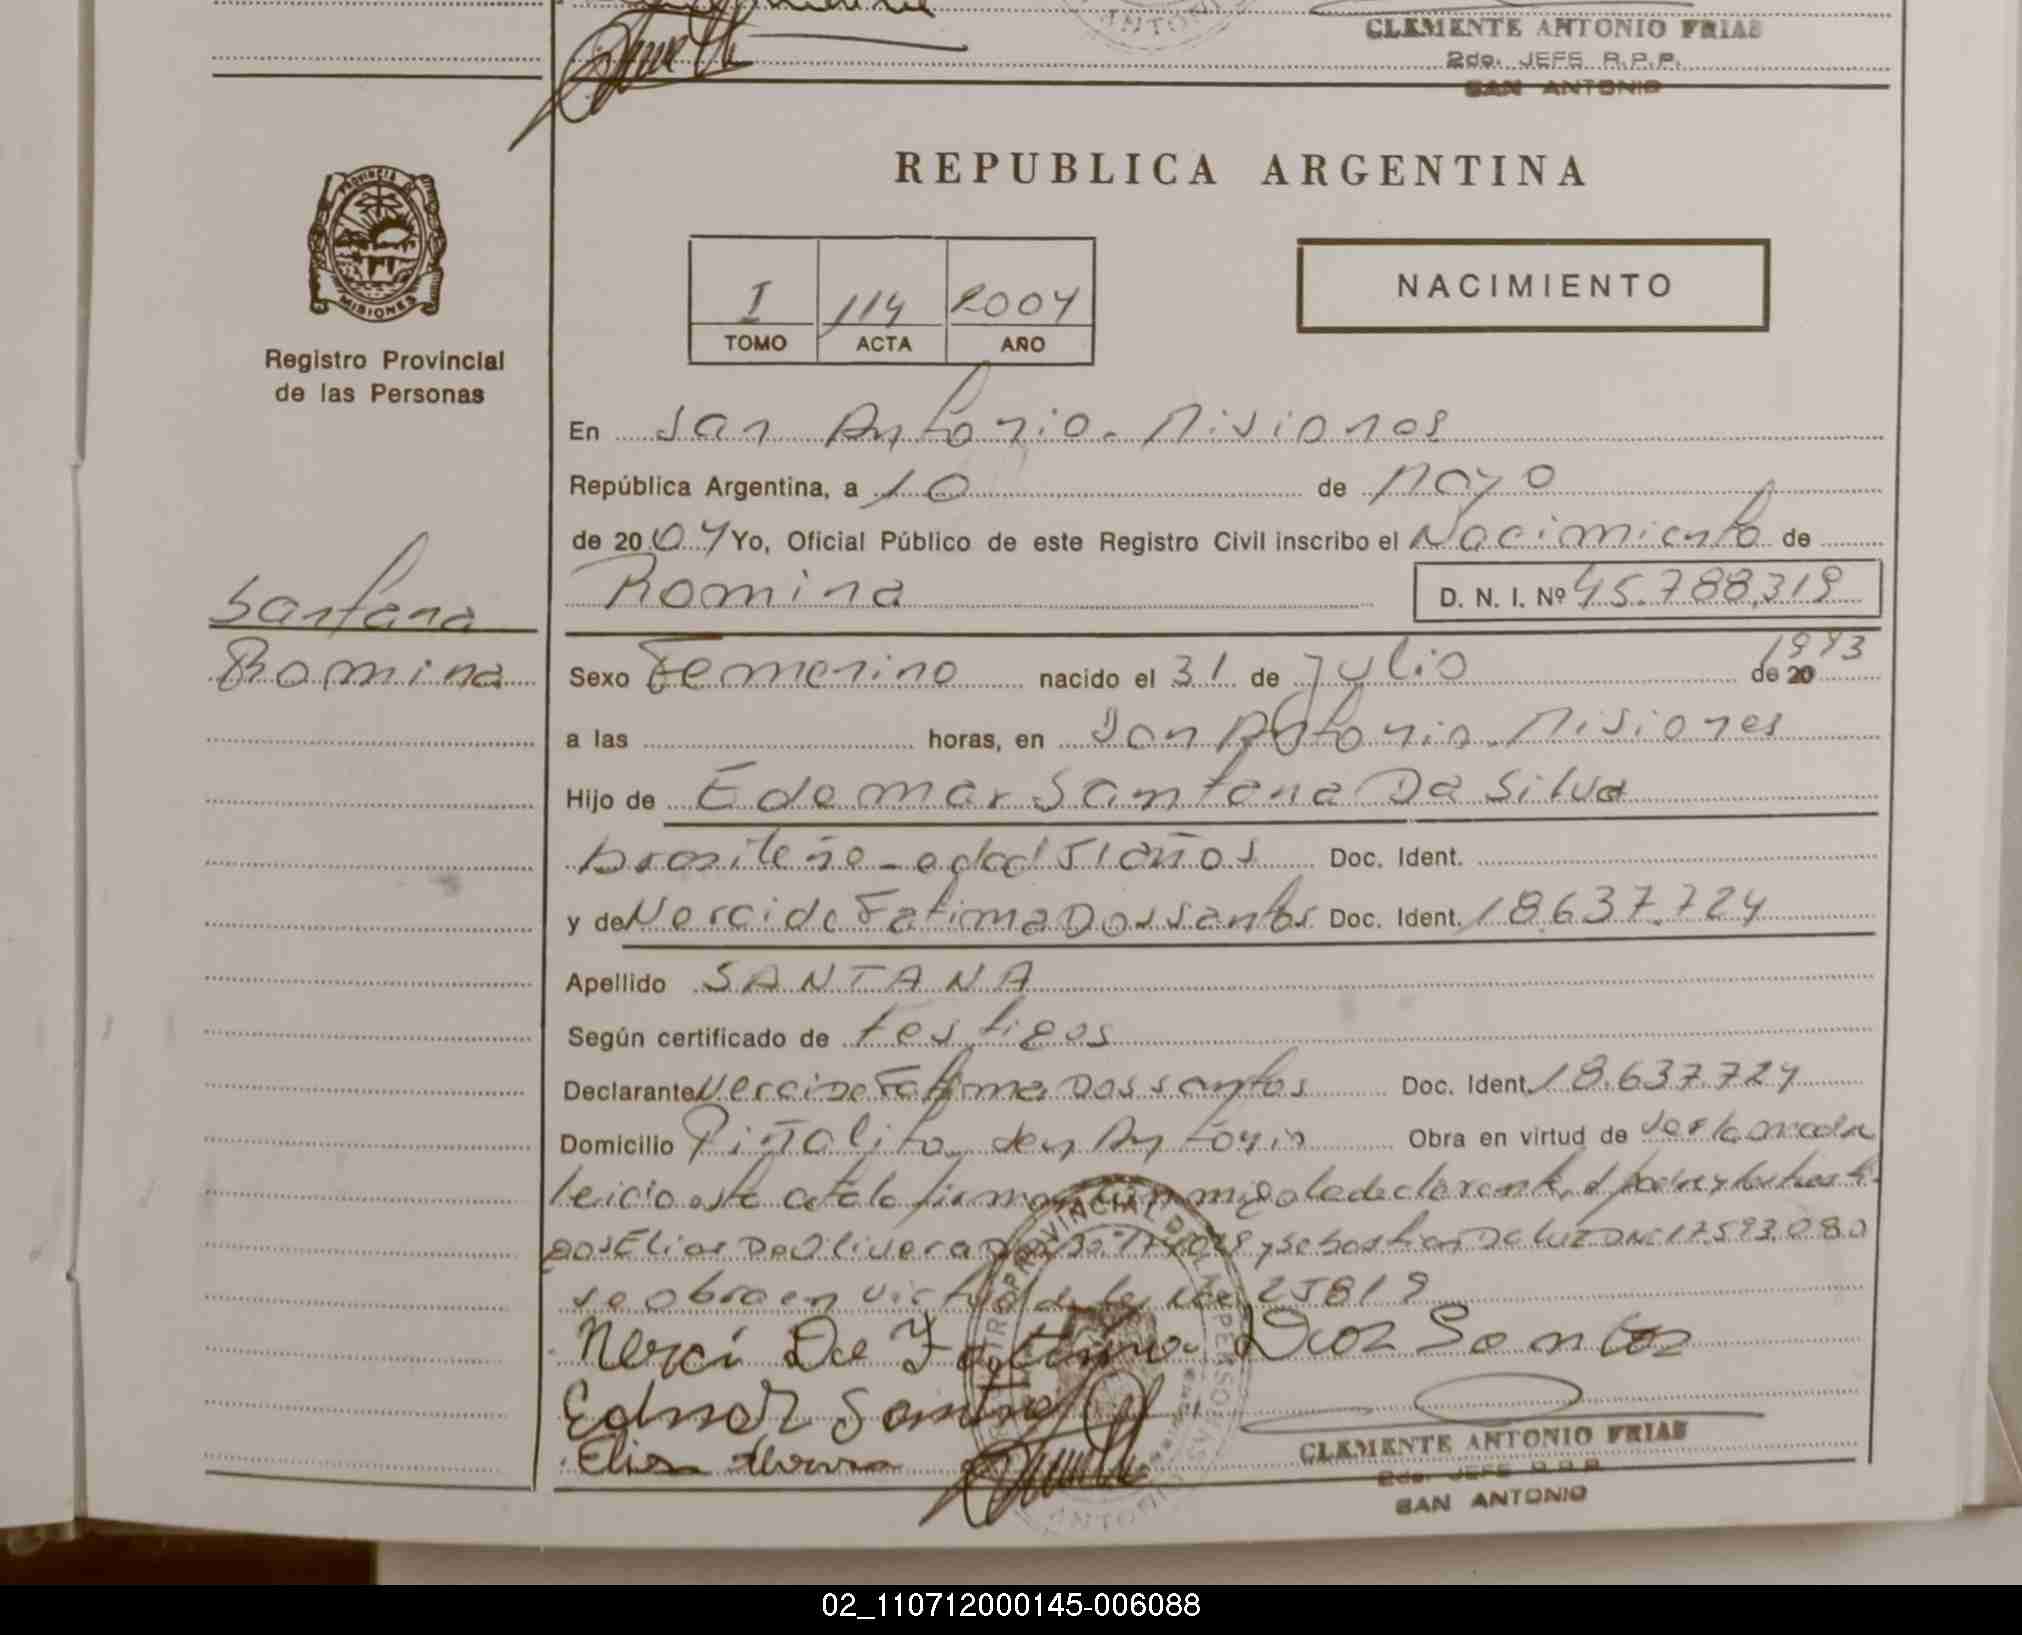 CLEMENTE ANTONIO FRIAS
2do. JEFE R.P.P.
SAN ANTONIO
REPUBLICA ARGENTINA
PROVINCIA DE
MISIONES
Registro Provincial
de las Personas
I 114 2004
TOMO ACTA AÑO
NACIMIENTO
En San Antonio - Misiones
República Argentina, a 10 de Mayo
de 2004 Yo, Oficial Público de este Registro Civil inscribo el Nacimiento de
Romina D. N. I. Nº 45.788.319
Santana
Romina
Sexo Femenino nacido el 31 de Julio de 20 1993
a las horas, en San Antonio - Misiones
Hijo de Edemar Santana Da Silva
brasileño - edad 51 años Doc. Ident.
y de Nerci de Fatima Dos santos Doc. Ident. 18.637.724
Apellido SANTANA
Según certificado de testigos
Declarante Nerci De Fatima Dos santos Doc. Ident. 18.637.724
Domicilio Piñalito San Antonio Obra en virtud de ser la madre
leida esta acta la firman conmigo la declarante, el padre y los testi
gos Elias De Olivera y Sebastian Da Luz DNI 17.593.080
se obra en virtud de ley Nº 25819
Nerci De Fatima Dos Santos
Edmar Santana
CLEMENTE ANTONIO FRIAS
2do. JEFE R.P.P.
SAN ANTONIO
02_110712000145-006088